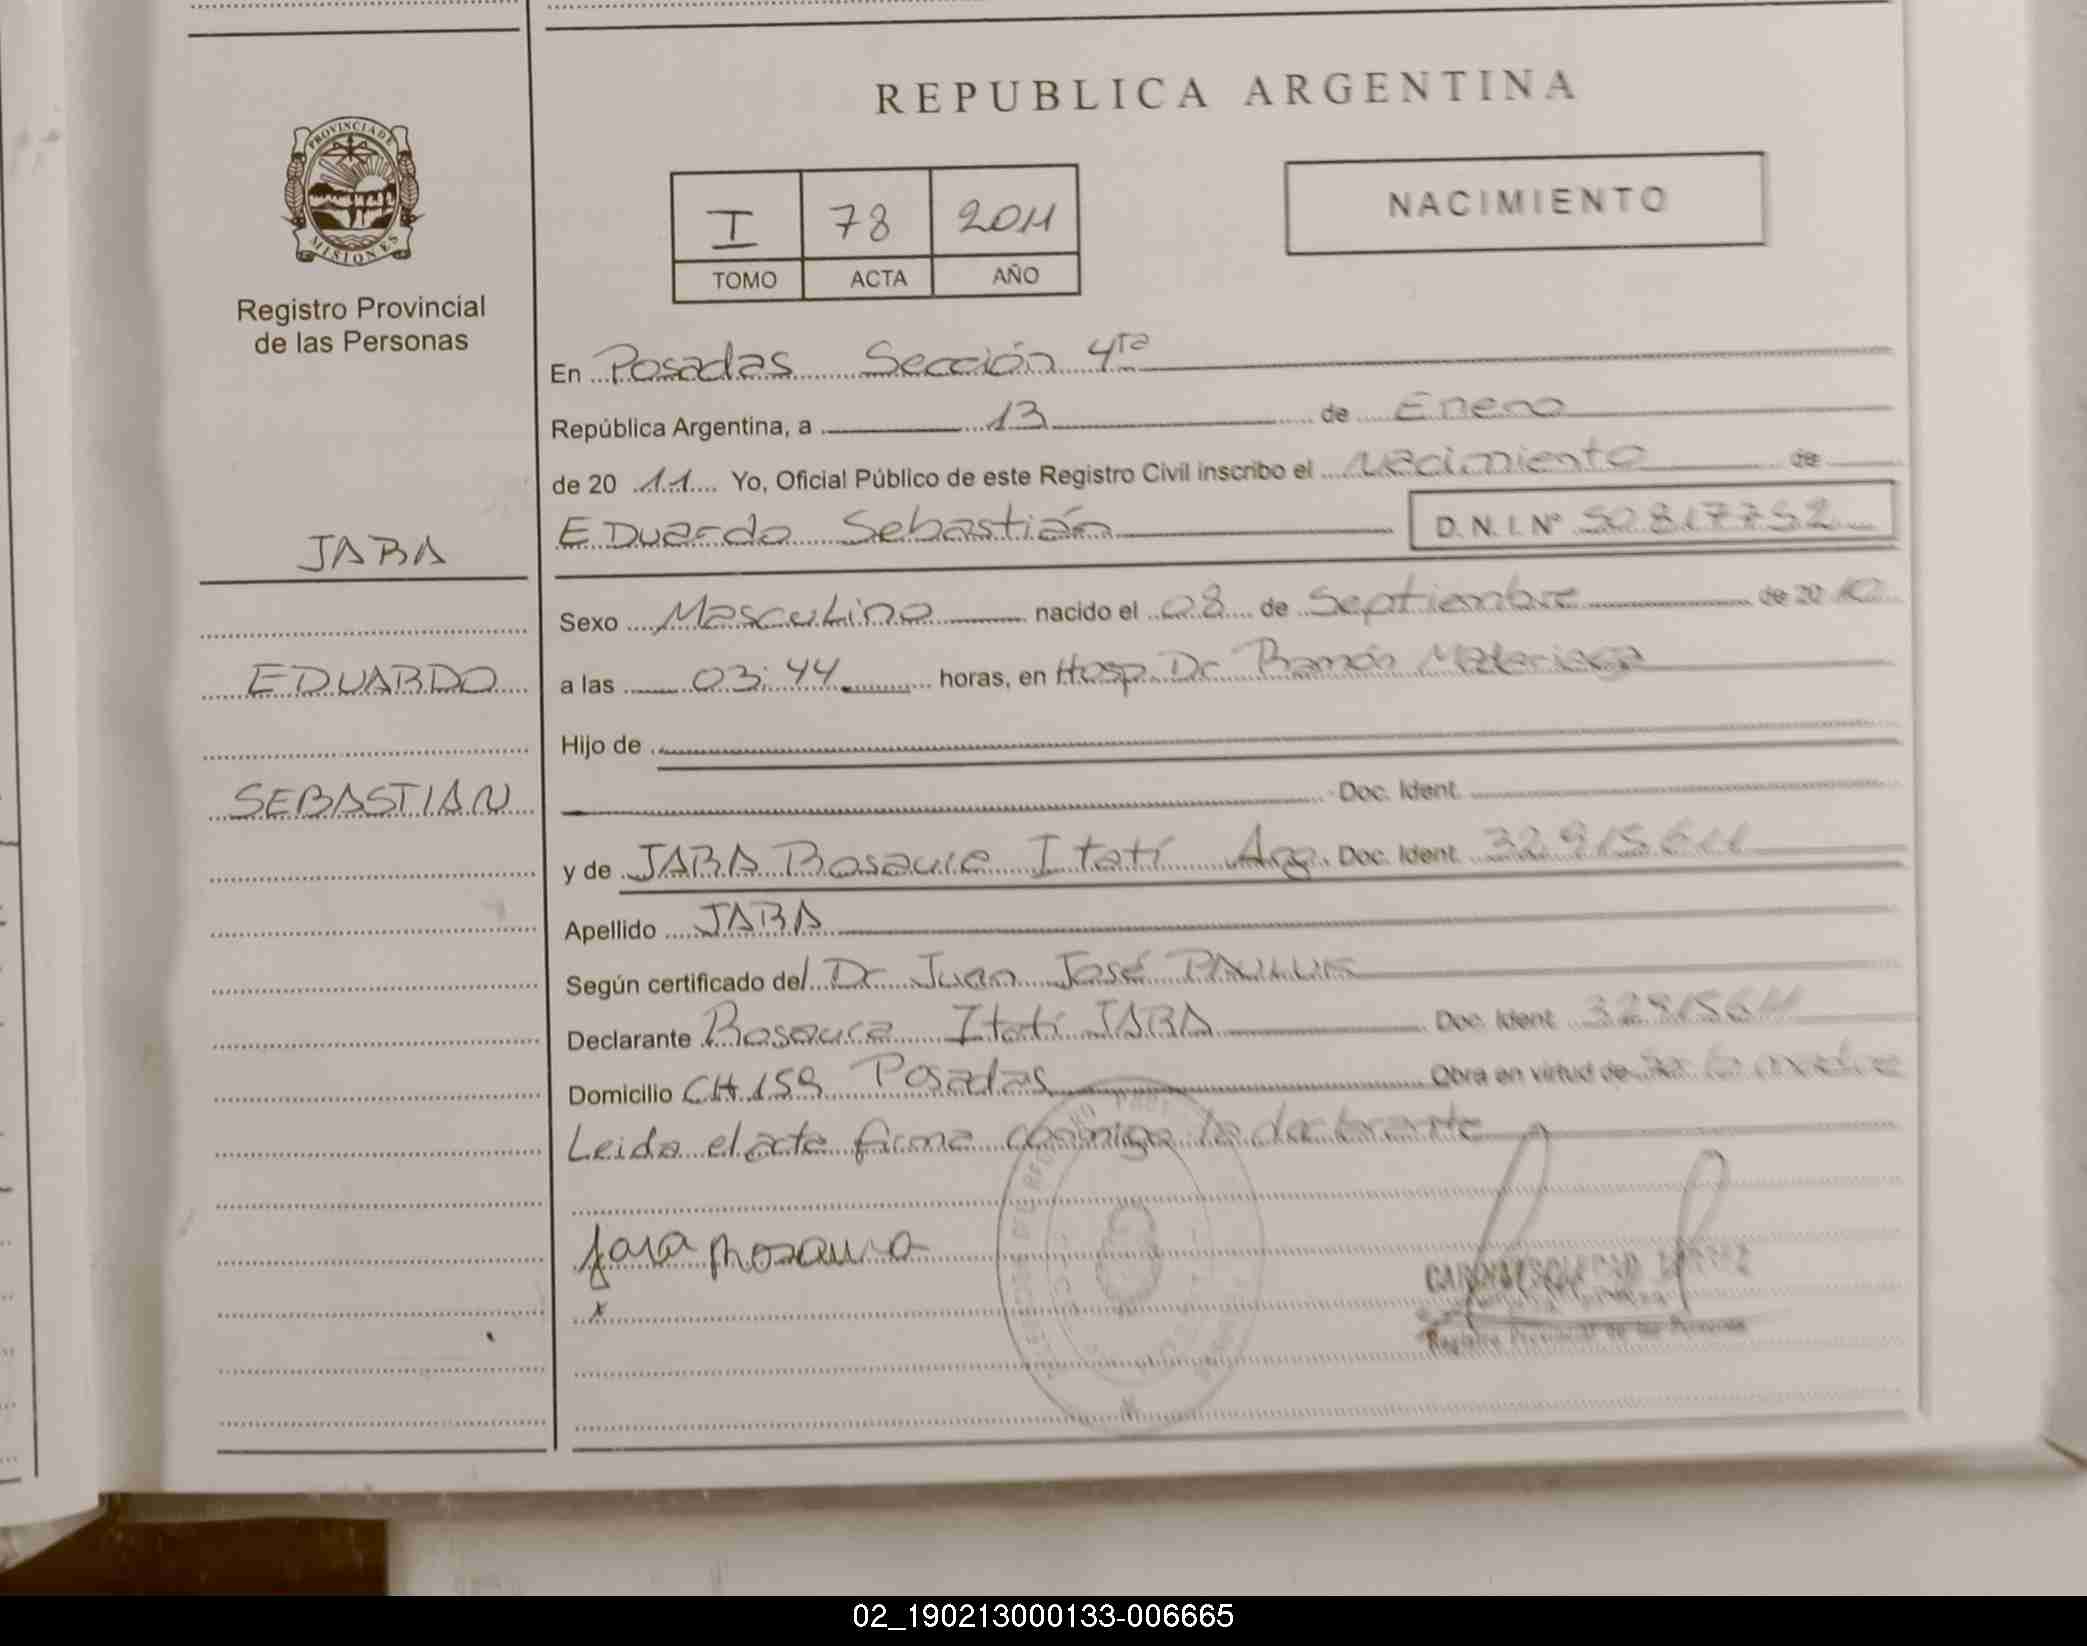 REPUBLICA ARGENTINA
PROVINCIA DE
MISIONES
Registro Provincial
de las Personas
I 78 2011
TOMO ACTA AÑO
NACIMIENTO
En Posadas Sección 4ta
República Argentina, a 13 de Enero
de 20 11 Yo, Oficial Público de este Registro Civil inscribo el Nacimiento de
JABA
Eduardo Sebastián D.N.I. Nº 50817752
Sexo Masculino nacido el 08 de Septiembre de 2010
EDUARDO
a las 03:44 horas, en Hosp. Dr. Ramón Madariaga
Hijo de
SEBASTIAN
Doc. Ident.
y de JARA Rosaura Itatí Arg. Doc. Ident. 32915611
Apellido JARA
Según certificado del Dr. Juan José
Declarante Rosaura Itatí JARA Doc. Ident.
Domicilio CH 159 Posadas Obra en virtud de ser la madre
Leida el acta firma conmigo la declarante
Jara Rosaura
x
Registro Provincial de las Personas
02_190213000133-006665